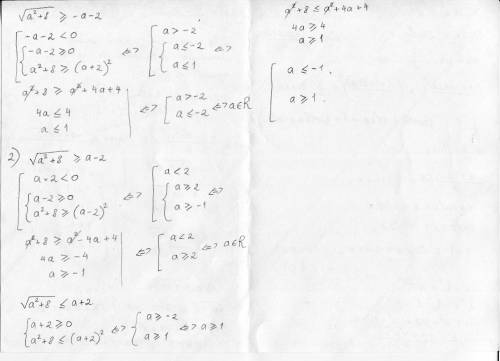 √a²+8 ≥ -a-2
[ -a-2<0
{ -a-2≥0
a²+8 ≥ (a+2)²
<=> [ a>-2
{ a≤-2
a≤1
<=>
a²+8 ≥ a²+4a+4
4a ≤ 4
a ≤ 1
<=> [ a>-2
a≤-2
<=> a∈R
2) √a²+8 ≥ a-2
[ a-2<0
{ a-2≥0
a²+8 ≥ (a-2)²
<=> [ a<2
{ a≥2
a≥-1
<=>
a²+8 ≥ a²-4a+4
4a ≥ -4
a ≥ -1
<=> [ a<2
a≥2
<=> a∈R
√a²+8 ≤ a+2
{ a+2≥0
a²+8 ≤ (a+2)²
<=> { a≥-2
a≥1
<=> a≥1
a²+8 ≤ a²+4a+4
4a ≥ 4
a ≥ 1
[ a ≤ -1.
a ≥ 1.